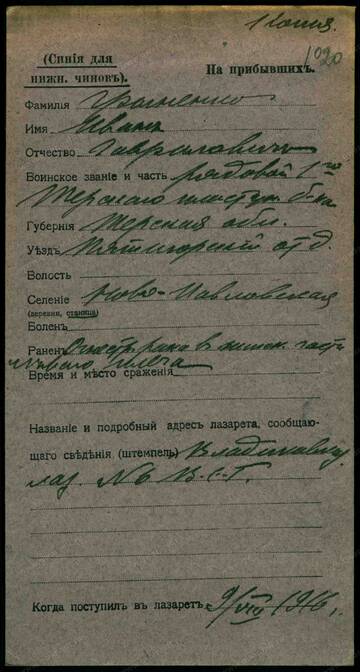 1 Копия.
1020
(Синія для
нижн. чиновъ).
На прибывшихъ.
Фамилія
Имя Иванъ
Отчество Гавриловичъ
Воинское званіе и часть рядовой 1го
Терскаго пластун. б-на
Губернія Терская обл.
Уѣздъ Пятигорскій отд.
Волость
Селеніе Ново-Павловская
(деревня, станица)
Боленъ
Раненъ Огнестр. рана в нижн. части
лѣваго плеча
Время и мѣсто сраженія
Названіе и подробный адресъ лазарета, сообщаю-
щаго свѣдѣнія (штемпель) Владикавк.
лаз. №6 В.С.Г.
Когда поступилъ въ лазаретъ 9/VIII 1916 г.